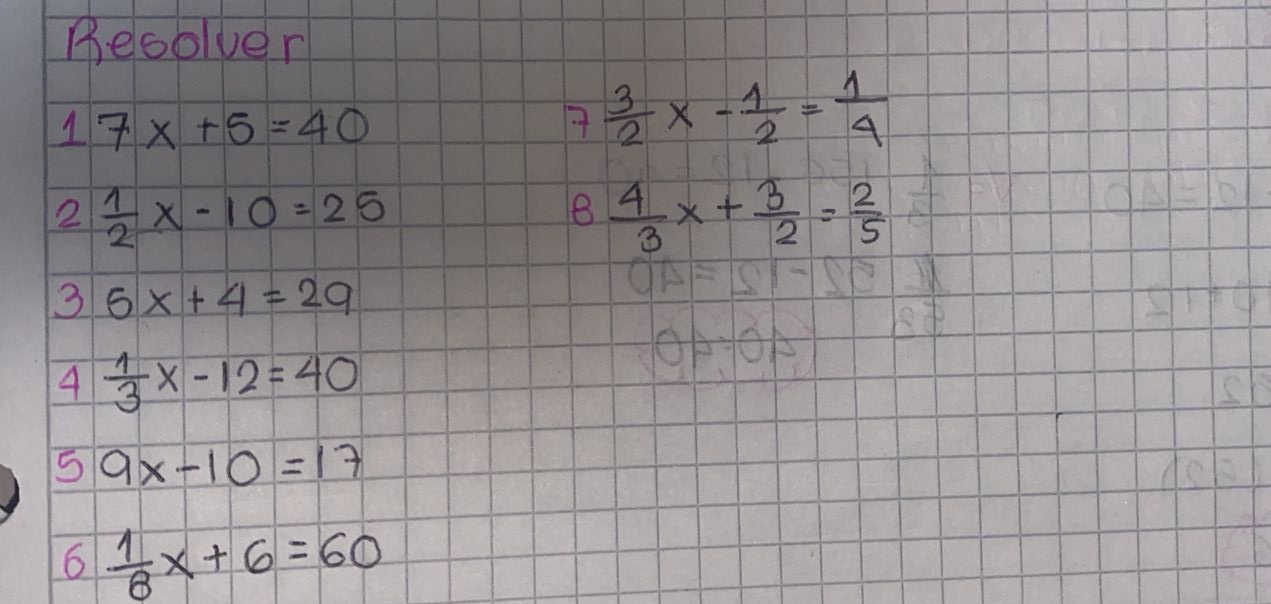 Resolver
1 7x + 5 = 40
2 1/2 x - 10 = 25
3 5x + 4 = 29
4 1/3 x - 12 = 40
5 9x - 10 = 17
6 1/8 x + 6 = 60
7 3/2 x - 1/2 = 1/4
8 4/3 x + 3/2 = 2/5